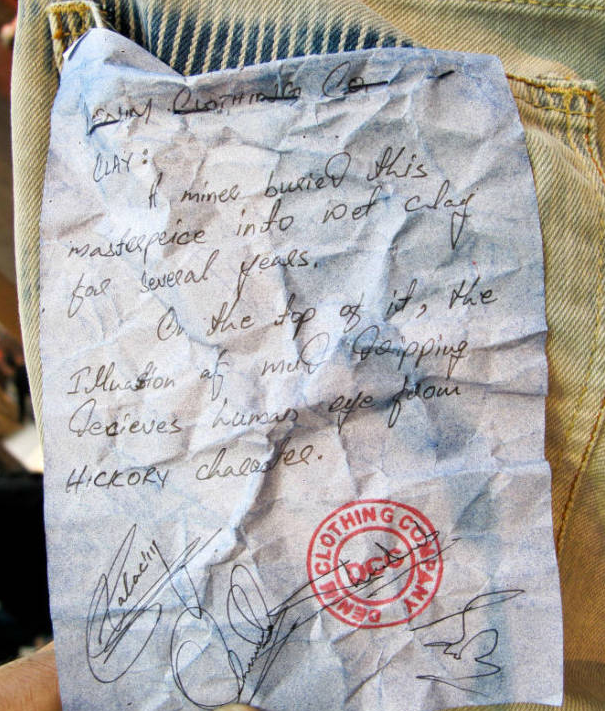 DENIM CLOTHING Co
CLAY:
A miner buried this
masterpeice into wet clay
for several years.
On the top of it, the
of mud Dripping
Decieves human eye from
HICKORY
CLOTHING COMPANY
DENIM
DCC